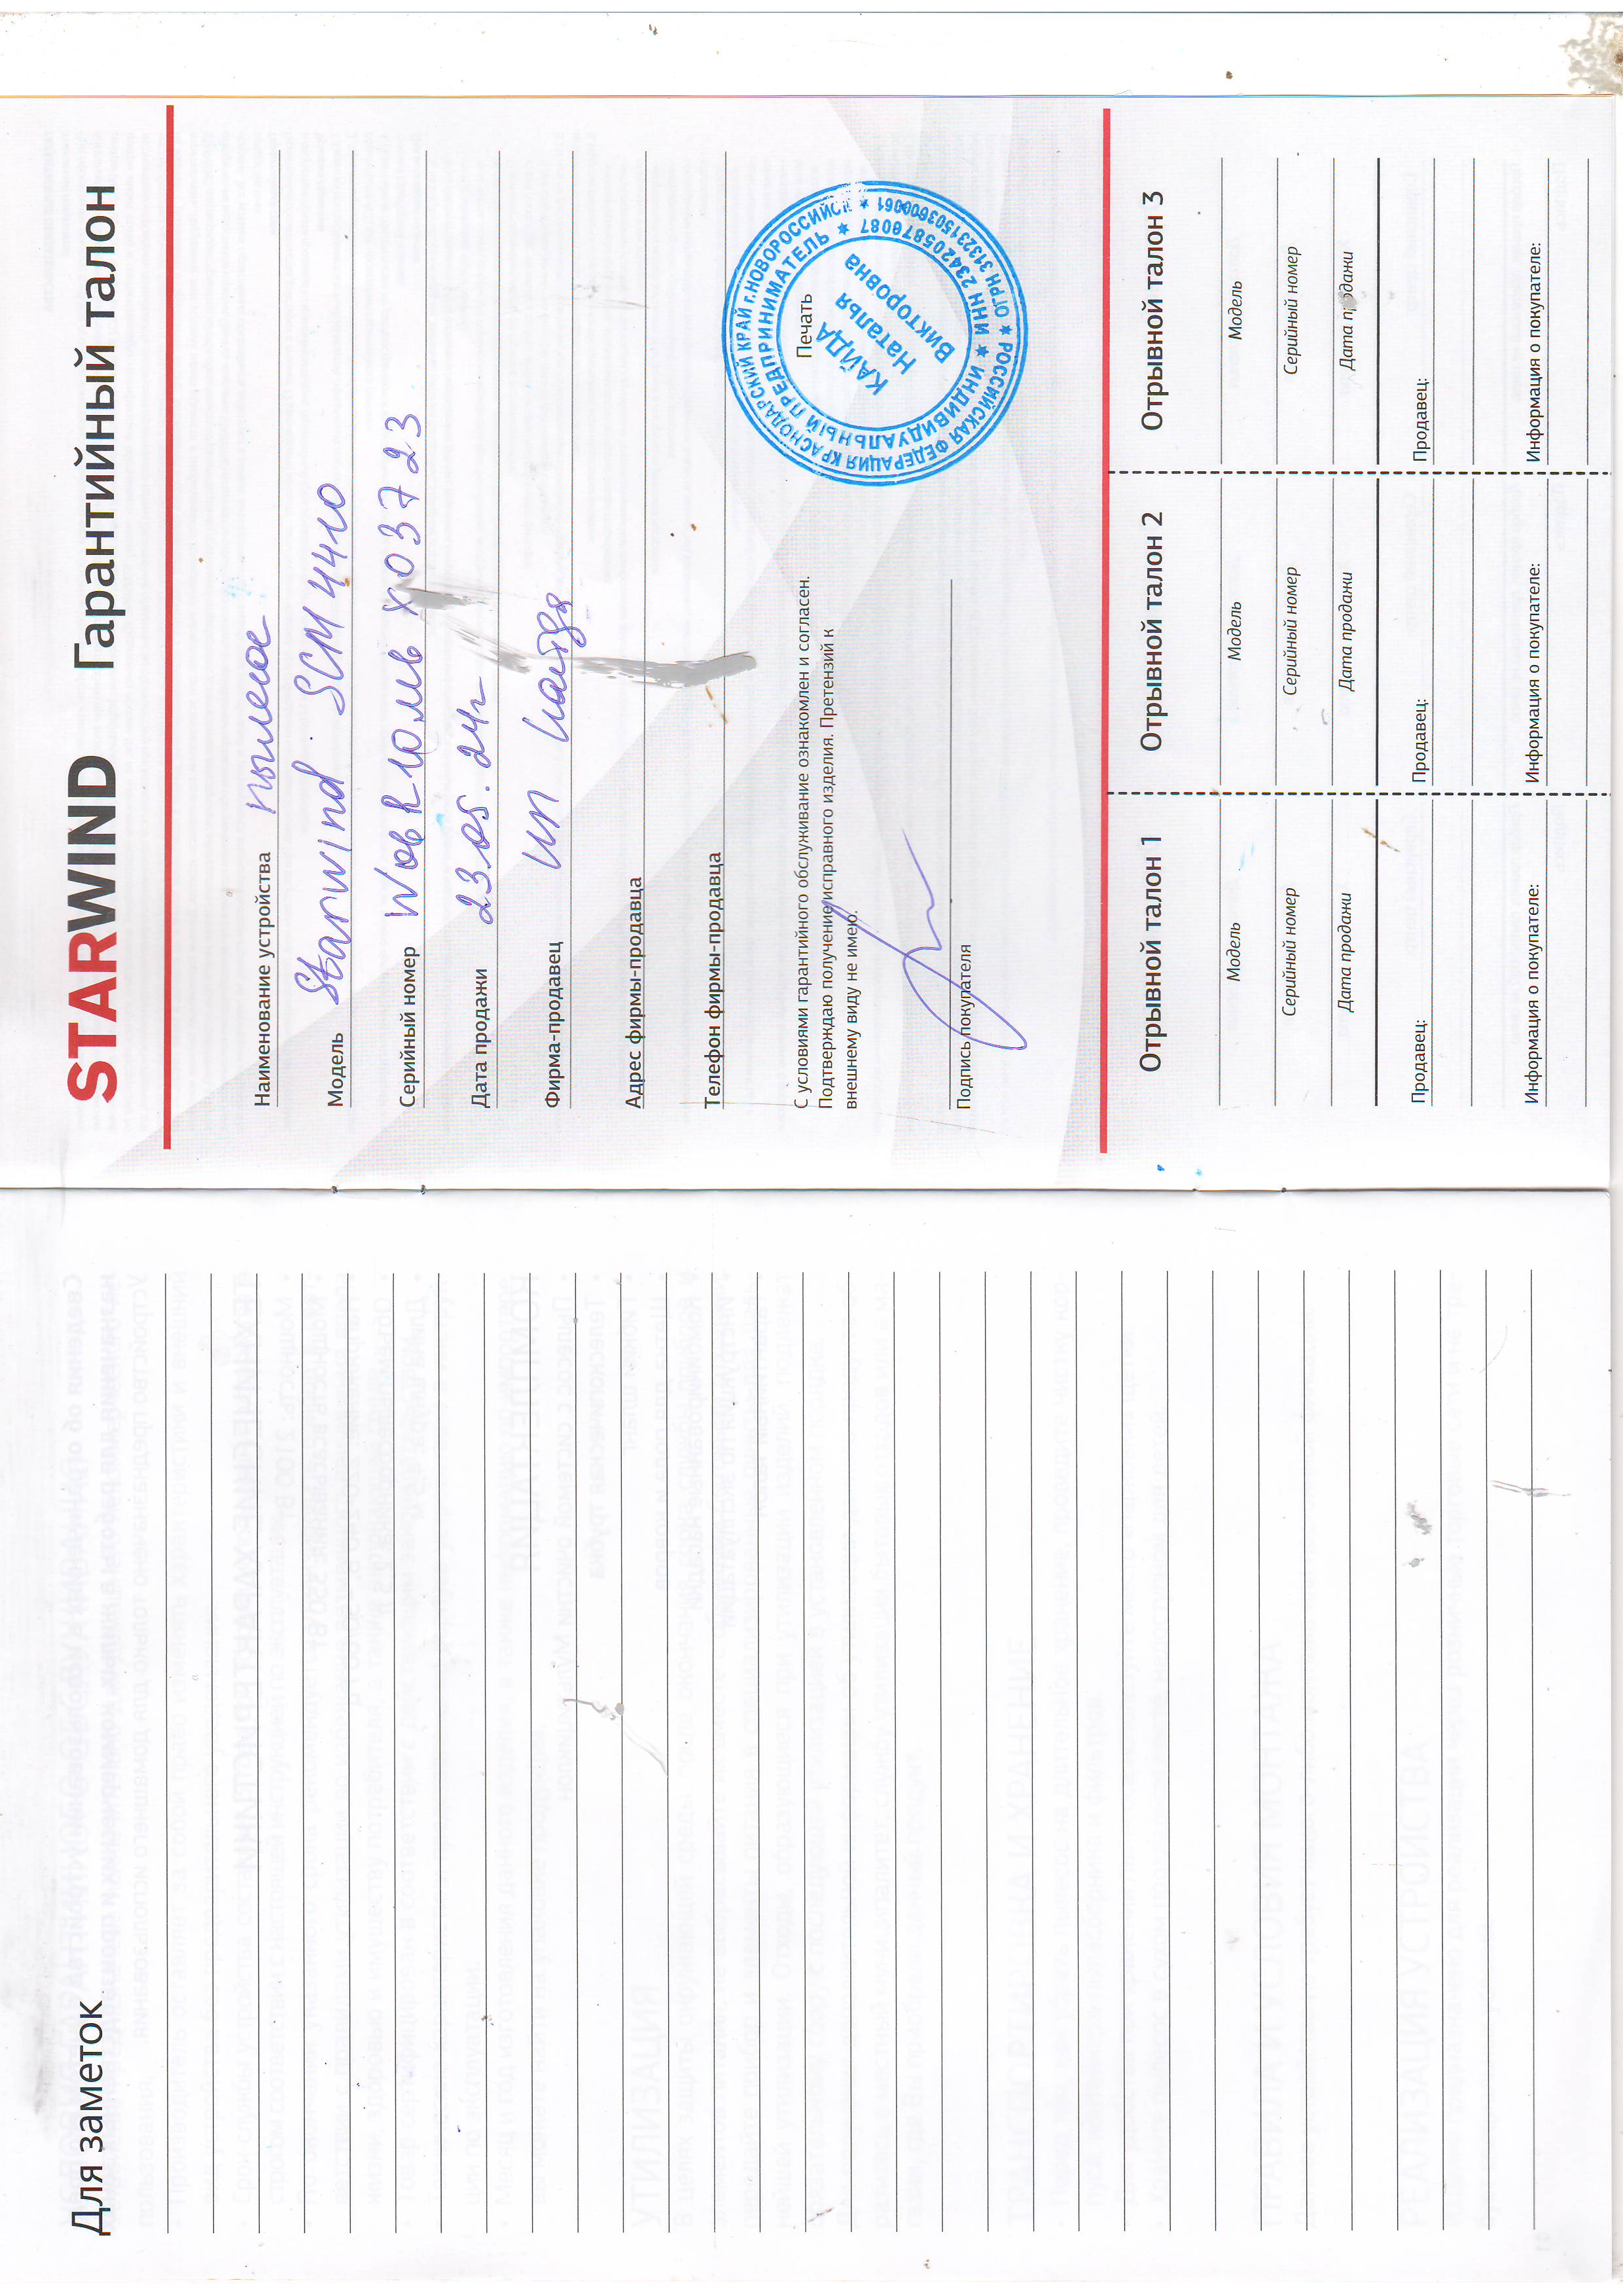 Для заметок
STARWIND Гарантийный талон
Наименование устройства пылесос
Модель Starwind SCM4410
Серийный номер
Дата продажи 23.05.24г
Фирма-продавец ип Кайда
Адрес фирмы-продавца
Телефон фирмы-продавца
С условиями гарантийного обслуживание ознакомлен и согласен.
Подтверждаю получение исправного изделия. Претензий к
внешнему виду не имею.
Печать
РОССИЙСКАЯ ФЕДЕРАЦИЯ КРАСНОДАРСКИЙ КРАЙ г.НОВОРОССИЙСК
ИНДИВИДУАЛЬНЫЙ ПРЕДПРИНИМАТЕЛЬ
ИНН 234205870087
КАЙДА
Наталья
Викторовна
Подпись покупателя
Отрывной талон 1
Модель
Серийный номер
Дата продажи
Продавец:
Информация о покупателе:
Отрывной талон 2
Модель
Серийный номер
Дата продажи
Продавец:
Информация о покупателе:
Отрывной талон 3
Модель
Серийный номер
Дата продажи
Продавец:
Информация о покупателе: